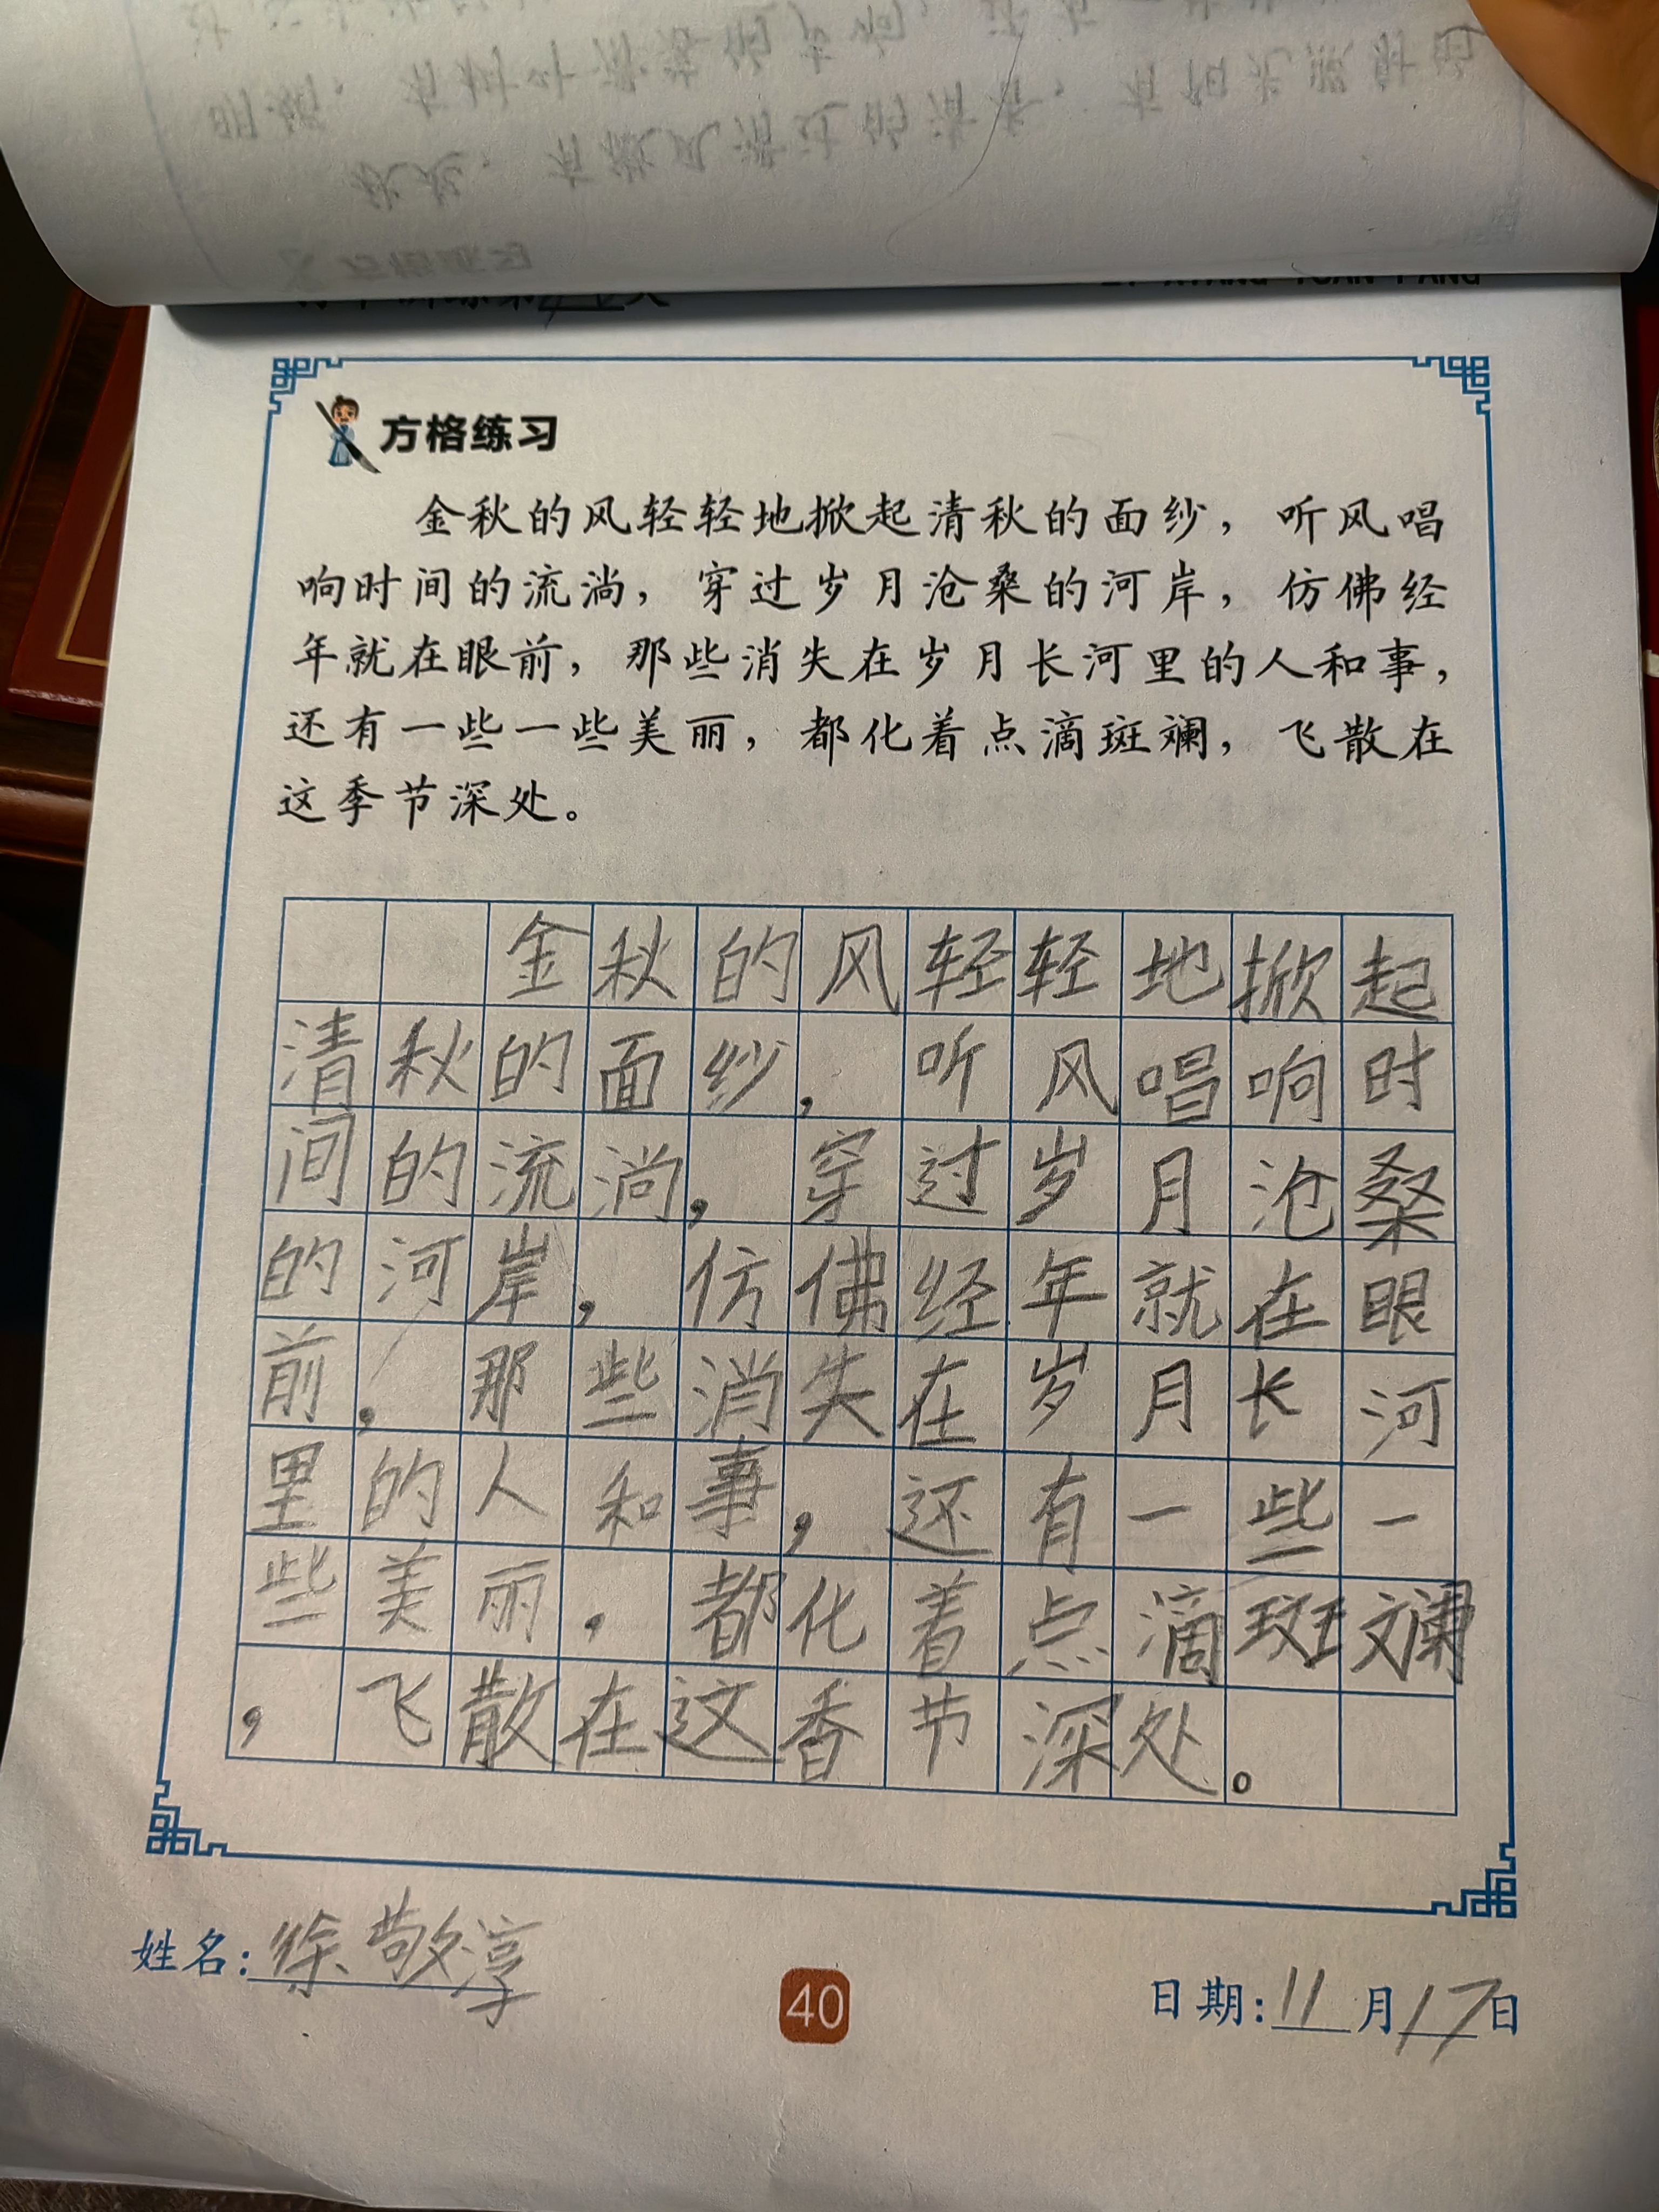 方格练习
金秋的风轻轻地掀起清秋的面纱，听风唱
响时间的流淌，穿过岁月沧桑的河岸，仿佛经
年就在眼前，那些消失在岁月长河里的人和事，
还有一些一些美丽，都化着点滴斑斓，飞散在
这季节深处。
金秋的风轻轻地掀起
清秋的面纱，听风唱响时
间的流淌，穿过岁月沧桑
的河岸，仿佛经年就在眼
前，那些消失在岁月长河
里的人和事，还有一些一
些美丽，都化着点滴斑斓
，飞散在这香节深处。
姓名：徐敬淳
40
日期：11月17日